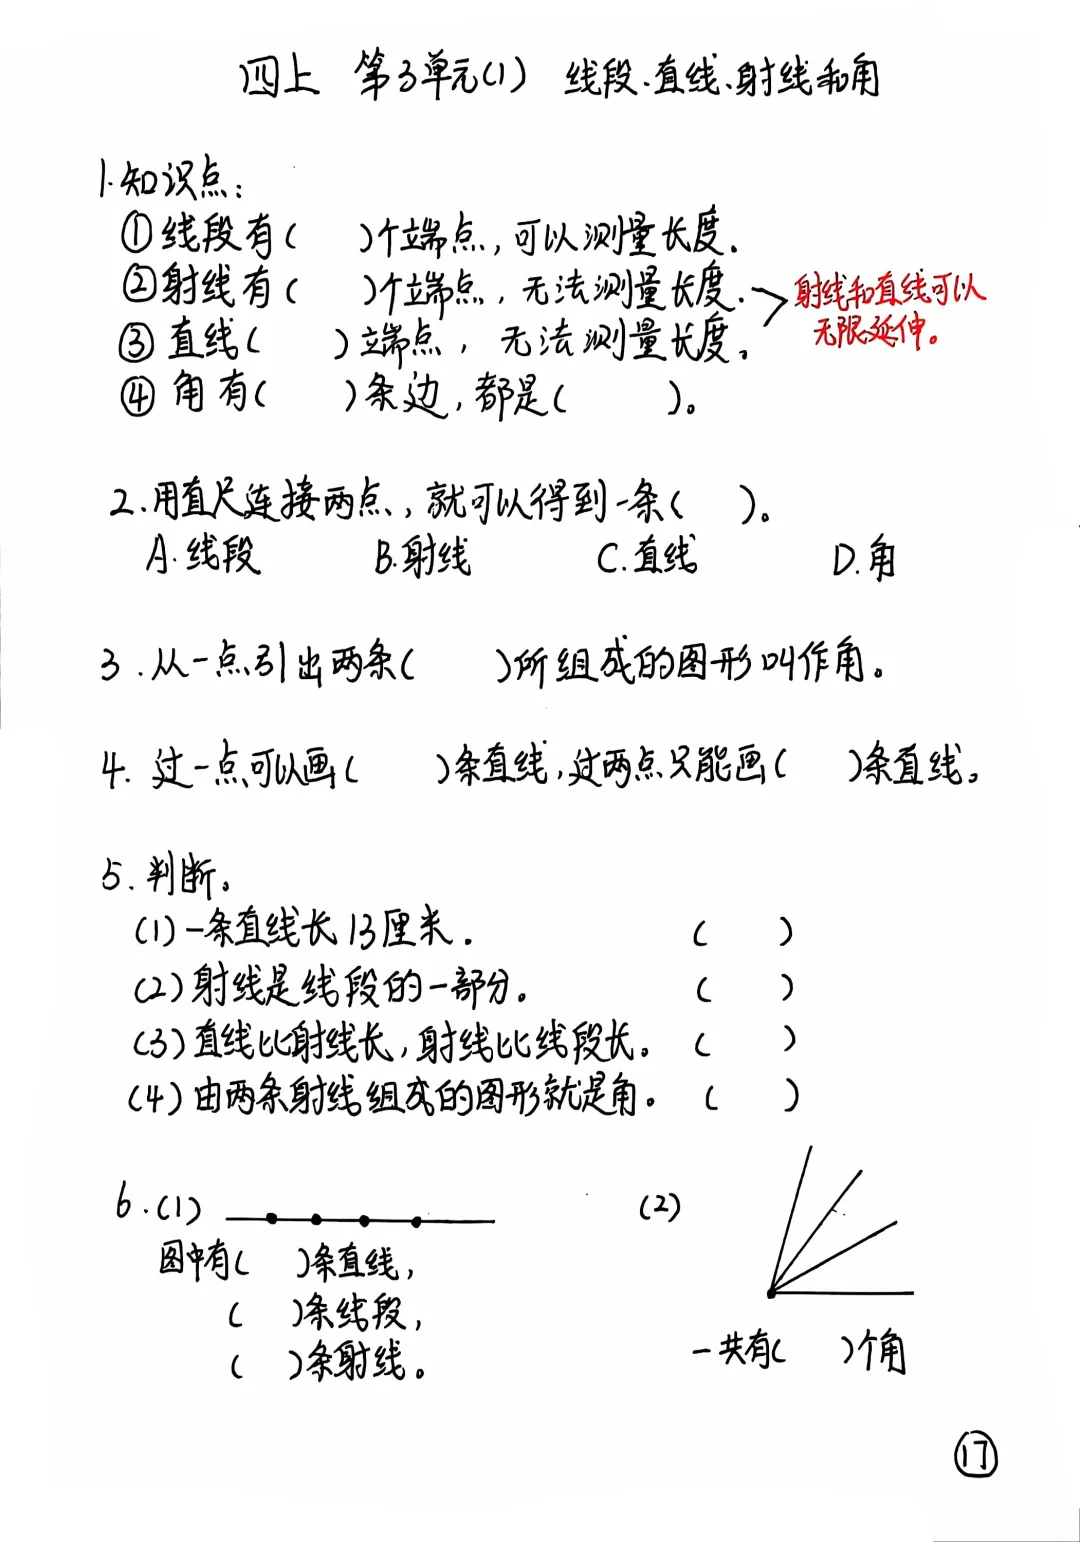 四上 第3单元(1) 线段、直线、射线和角
1.知识点：
①线段有( )个端点，可以测量长度.
②射线有( )个端点，无法测量长度.
射线和直线可以
无限延伸。
③直线( )端点，无法测量长度。
④角有( )条边，都是( )。
2.用直尺连接两点，就可以得到一条( )。
A.线段 B.射线 C.直线 D.角
3.从一点引出两条( )所组成的图形叫作角。
4.过一点可以画( )条直线，过两点只能画( )条直线。
5.判断。
(1)一条直线长13厘米. ( )
(2)射线是线段的一部分。 ( )
(3)直线比射线长，射线比线段长。 ( )
(4)由两条射线组成的图形就是角。 ( )
6.(1)
图中有( )条直线，
( )条线段，
( )条射线。
(2)
一共有( )个角
17